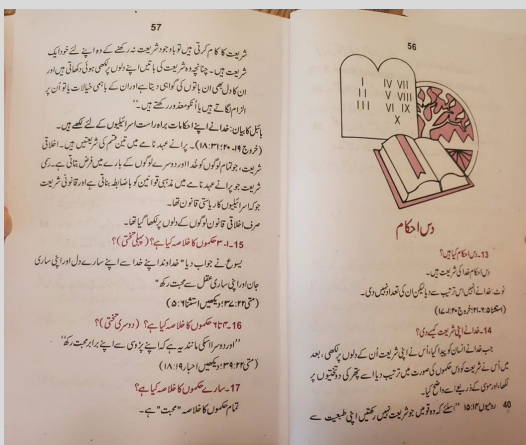 56
I
II
III
IV VII
V VIII
VI IX
X
دس احکام
13۔ دس احکام کیا ہیں؟
دس احکام خدا کی شریعت ہیں۔
نوٹ: خدا نے انہیں اس ترتیب سے دیا لیکن ان کی تعداد نہیں دی۔
14۔ خدا نے اپنی شریعت کیسے دی؟
جب خدا نے انسان کو پیدا کیا، اُس نے اپنی شریعت اُن کے دلوں پر لکھی، بعد
میں اُس نے شریعت کو دس حکموں کی صورت میں ترتیب دیا اسے پتھر کی دو تختیوں پر
لکھا، اور موسیٰ کے ذریعے واضح کیا۔
40 رومیوں ۱۵:۱۴ "اسلئے کہ وہ قومیں جو شریعت نہیں رکھتیں اپنی طبیعت سے
57
شریعت کا کام کرتی ہیں تو باوجود شریعت نہ رکھنے کے وہ اپنے لئے خود ایک
شریعت ہیں۔ چنانچہ وہ شریعت کی باتیں اپنے دلوں پر لکھی ہوئی دکھاتی ہیں اور
ان کا دل بھی ان باتوں کی گواہی دیتا ہے اور ان کے باہمی خیالات یا تو اُن پر
الزام لگاتے ہیں یا اُنکو معذور رکھتے ہیں۔"
بائبل کا بیان: خدا نے اپنے احکامات براہ راست اسرائیلیوں کے لئے لکھے ہیں۔
(خروج ۱۹۔۲۰؛ ۱۸:۳۱)۔ پرانے عہد نامے میں تین قسم کی شریعتیں ہیں۔ اخلاقی
شریعت، جو تمام لوگوں کو خدا اور دوسرے لوگوں کے بارے میں فرض بتاتی ہے۔ رسمی
شریعت جو پرانے عہد نامے میں مذہبی قوانین کو باضابطہ بناتی ہے اور قانونی شریعت
جو کہ اسرائیلیوں کا ریاستی قانون تھا۔
صرف اخلاقی قانون لوگوں کے دلوں پر لکھا گیا تھا۔
15۔ ۱-۳ حکموں کا خلاصہ کیا ہے؟ (پہلی تختی)؟
یسوع نے جواب دیا "خداوند اپنے خدا سے اپنے سارے دل اور اپنی ساری
جان اور اپنی ساری عقل سے محبت رکھ"
(متی ۳۷:۲۲؛ دیکھیں استثنا ۵:۶)
16۔ ۴ تا ۱۰ حکموں کا خلاصہ کیا ہے؟ (دوسری تختی)؟
"اور دوسرا اسکی مانند یہ ہے کہ اپنے پڑوسی سے اپنے برابر محبت رکھ"
(متی ۳۹:۲۲؛ دیکھیں احبار ۱۸:۱۹)
17۔ سارے حکموں کا خلاصہ کیا ہے؟
تمام حکموں کا خلاصہ "محبت" ہے۔